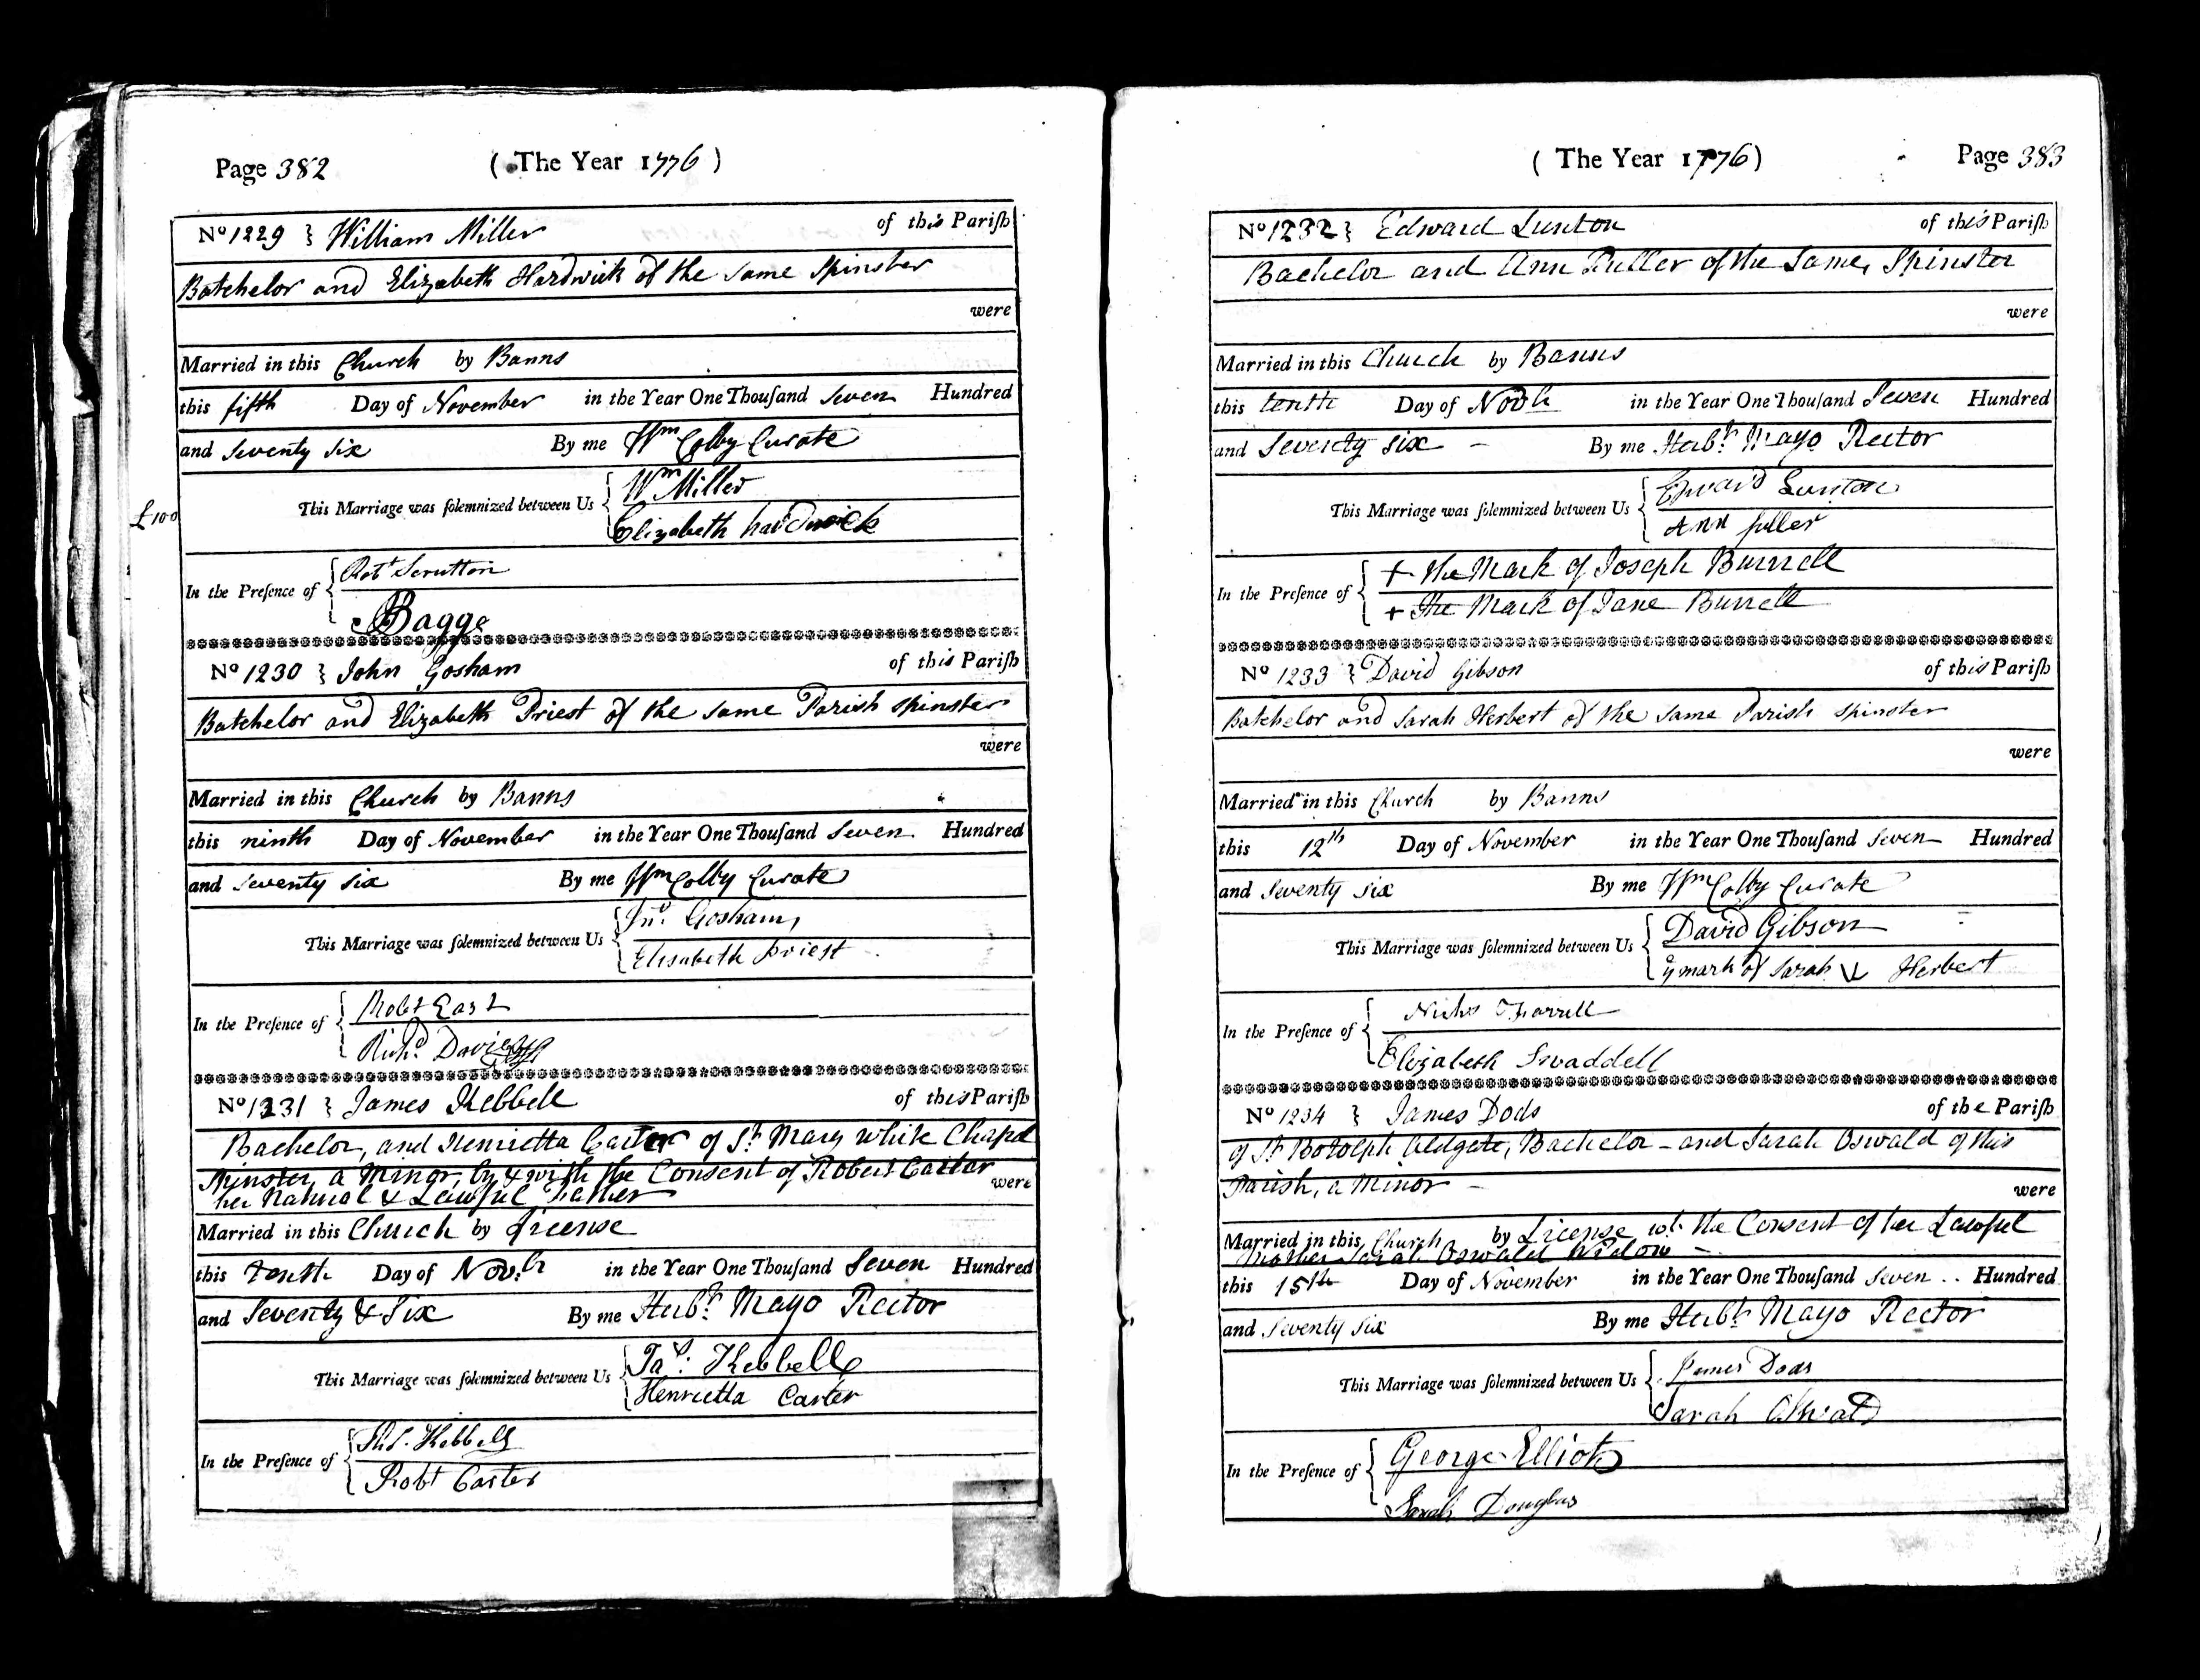 Page 382 ( The Year 1776 )
No 1229 } William Miller of this Parish
Batchelor and Elizabeth Hardwick of the same Spinster
were
Married in this Church by Banns
this fifth Day of November in the Year One Thousand Seven Hundred
and Seventy six By me Wm Colby Curate
This Marriage was solemnized between Us { Wm Miller
Elizabeth hardwick
£100
In the Presence of { Robt Scrutton
Bagge
No 1230 } John Gosham of this Parish
Batchelor and Elizabeth Priest of the same Parish spinster
were
Married in this Church by Banns
this ninth Day of November in the Year One Thousand Seven Hundred
and Seventy six By me Wm Colby Curate
This Marriage was solemnized between Us { Jno. Gosham
Elisabeth Priest
In the Presence of { Robt East
Richd. Davies
No 1231 } James Kebbell of this Parish
Bachelor, and Henrietta Carter of St. Mary White Chapel
Spinster, a Minor, by & with the Consent of Robert Carter
her Natural & Lawful Father were
Married in this Church by License
this tenth Day of Nov.br in the Year One Thousand Seven Hundred
and Seventy & Six By me Herbt. Mayo Rector
This Marriage was solemnized between Us { Jas. Kebbell
Henrietta Carter
In the Presence of { Kebbell
Robt Carter
( The Year 1776 ) Page 383
No 1232 } Edward Lunton of this Parish
Bachelor and Ann Fuller of the Same, Spinster
were
Married in this Church by Banns
this tenth Day of Novbr in the Year One Thousand Seven Hundred
and Seventy six - By me Herbt. Mayo Rector
This Marriage was solemnized between Us { Edward Lunton
Ann fuller
In the Presence of { + the Mark of Joseph Burrell
+ The Mark of Jane Burrell
No 1233 } David Gibson of this Parish
Batchelor and Sarah Herbert of the same Parish spinster
were
Married in this Church by Banns
this 12th Day of November in the Year One Thousand Seven Hundred
and Seventy six By me Wm Colby Curate
This Marriage was solemnized between Us { David Gibson
ye mark of Sarah Herbert
In the Presence of { Nichs Farrell
Elizabeth Swaddell
No 1234 } James Dods of the Parish
of St. Botolph Aldgate, Bachelor - and Sarah Oswald of this
Parish, a Minor - were
Married in this Church by License wt. the Consent of her Lawful
Mother Sarah Oswald Widow -
this 15th Day of November in the Year One Thousand Seven Hundred
and Seventy six By me Herbt. Mayo Rector
This Marriage was solemnized between Us { James Dods
Sarah Oswald
In the Presence of { George Elliot
Sarah Douglas